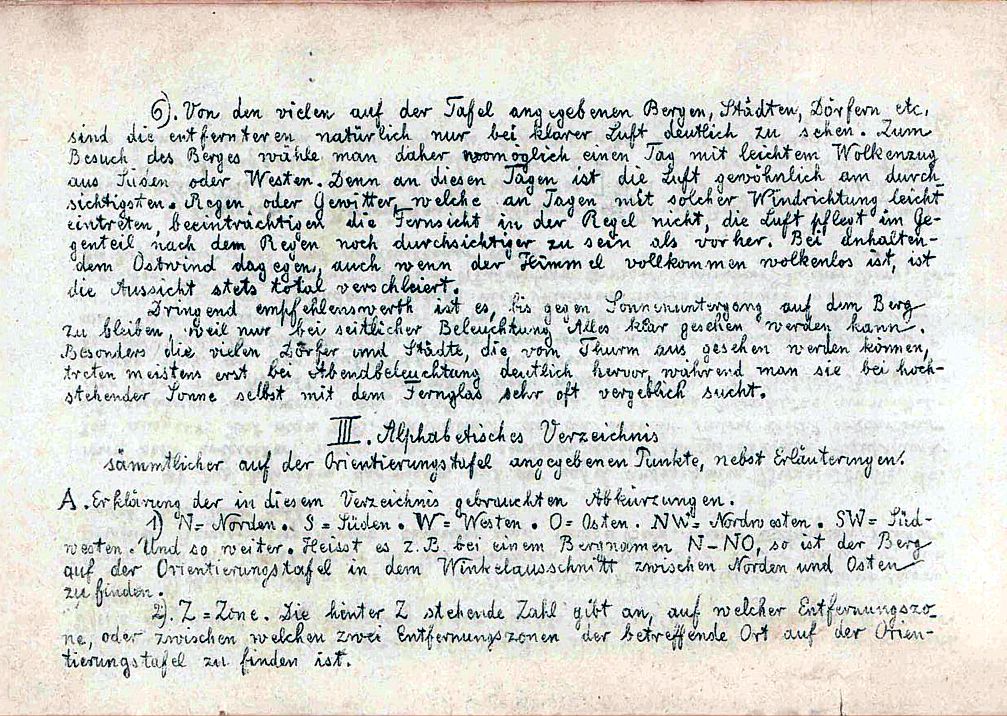 6). Von den vielen auf der Tafel angegebenen Bergen, Städten, Dörfern etc.
sind die entfernteren natürlich nur bei klarer Luft deutlich zu sehen. Zum
Besuch des Berges wähle man daher womöglich einen Tag mit leichtem Wolkenzug
aus Süden oder Westen. Denn an diesen Tagen ist die Luft gewöhnlich am durch
sichtigsten. Regen oder Gewitter, welche an Tagen mit solcher Windrichtung leicht
eintreten, beeinträchtigen die Fernsicht in der Regel nicht, die Luft pflegt im Ge-
genteil nach dem Regen noch durchsichtiger zu sein als vorher. Bei anhalten-
dem Ostwind dagegen, auch wenn der Himmel vollkommen wolkenlos ist, ist
die Aussicht stets total verschleiert.
Dringend empfehlenswerth ist es, bis gegen Sonnenuntergang auf dem Berg
zu bleiben, weil nur bei seitlicher Beleuchtung Alles klar gesehen werden kann.
Besonders die vielen Dörfer und Städte, die vom Thurm aus gesehen werden können,
treten meistens erst bei Abendbeleuchtung deutlich hervor, während man sie bei hoch-
stehender Sonne selbst mit dem Fernglas sehr oft vergeblich sucht.
III. Alphabetisches Verzeichnis
sämmtlicher auf der Orientierungstafel angegebenen Punkte, nebst Erläuterungen.
A. Erklärung der in diesem Verzeichnis gebrauchten Abkürzungen.
1) N = Norden. S = Süden. W = Westen. O = Osten. NW = Nordwesten. SW = Süd-
westen. Und so weiter. Heisst es z.B. bei einem Bergnamen N-NO, so ist der Berg
auf der Orientierungstafel in dem Winkelausschnitt zwischen Norden und Osten
zu finden.
2). Z = Zone. Die hinter Z stehende Zahl gibt an, auf welcher Entfernungszo-
ne, oder zwischen welchen zwei Entfernungszonen der betreffende Ort auf der Orien-
tierungstafel zu finden ist.